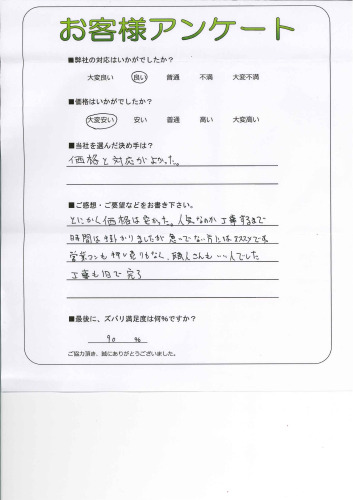 お客様アンケート
■弊社の対応はいかがでしたか？
大変良い 良い 普通 不満 大変不満
■価格はいかがでしたか？
大変安い 安い 普通 高い 大変高い
■当社を選んだ決め手は？
価格と対応がよかった。
■ご感想・ご要望などをお書き下さい。
とにかく価格は安かった。人気なのか工事するまで
時間は掛かりましたが急いでない方にはオススメです
営業マンも押し売りもなく、職人さんもいい人でした
工事も1日で完了
■最後に、ズバリ満足度は何%ですか？
90 %
ご協力頂き、誠にありがとうございました。